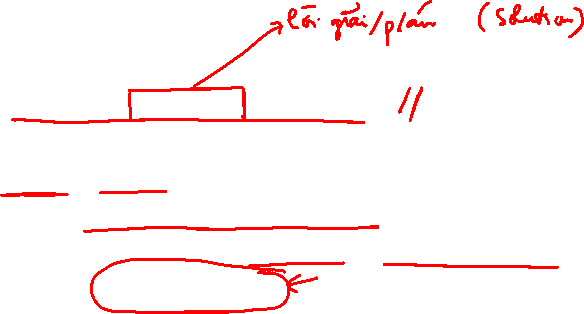 lời giải/plán (Solution)